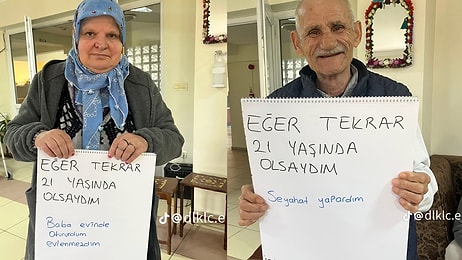 EĞER TEKRAR
21 YAŞINDA
OLSAYDIM
Baba evinde
Otururdum
evlenmezdim
@dlklc.e
EĞER TEKRAR
21 YAŞINDA
OLSAYDIM
Seyahat yapardım
@dlklc.e